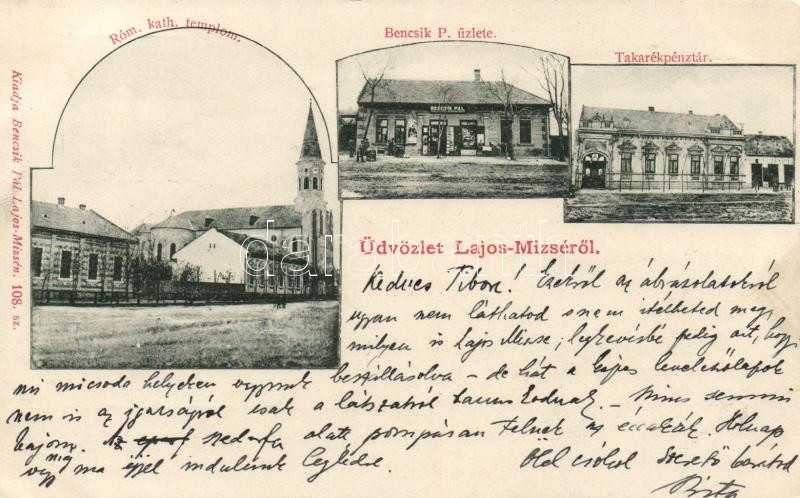 Róm. kath. templom.
Bencsik P. üzlete.
Takarékpénztár.
Kiadja Bencsik Pál Lajos-Mizsén. 108. sz.
BENCSIK PÁL
Üdvözlet Lajos-Mizséről.
darabanth
Kedves Tibor! Ezekről az ábrázolatokról
ugyan nem láthatod s nem itélheted meg,
milyen is Lajos Mizse; legkevésbé pedig azt, hogy
mi micsoda helyeken vagyunk beszállásolva – de hát a képes levelezőlapok
nem is az igazságról csak a látszatról tanuskodnak. – Nincs semmi
bajom. szed-fa alatt pompásan telnek az éjszakák. Holnap
még ma éjjel indulunk Ceglédre. Ölel csókol szerető barátod